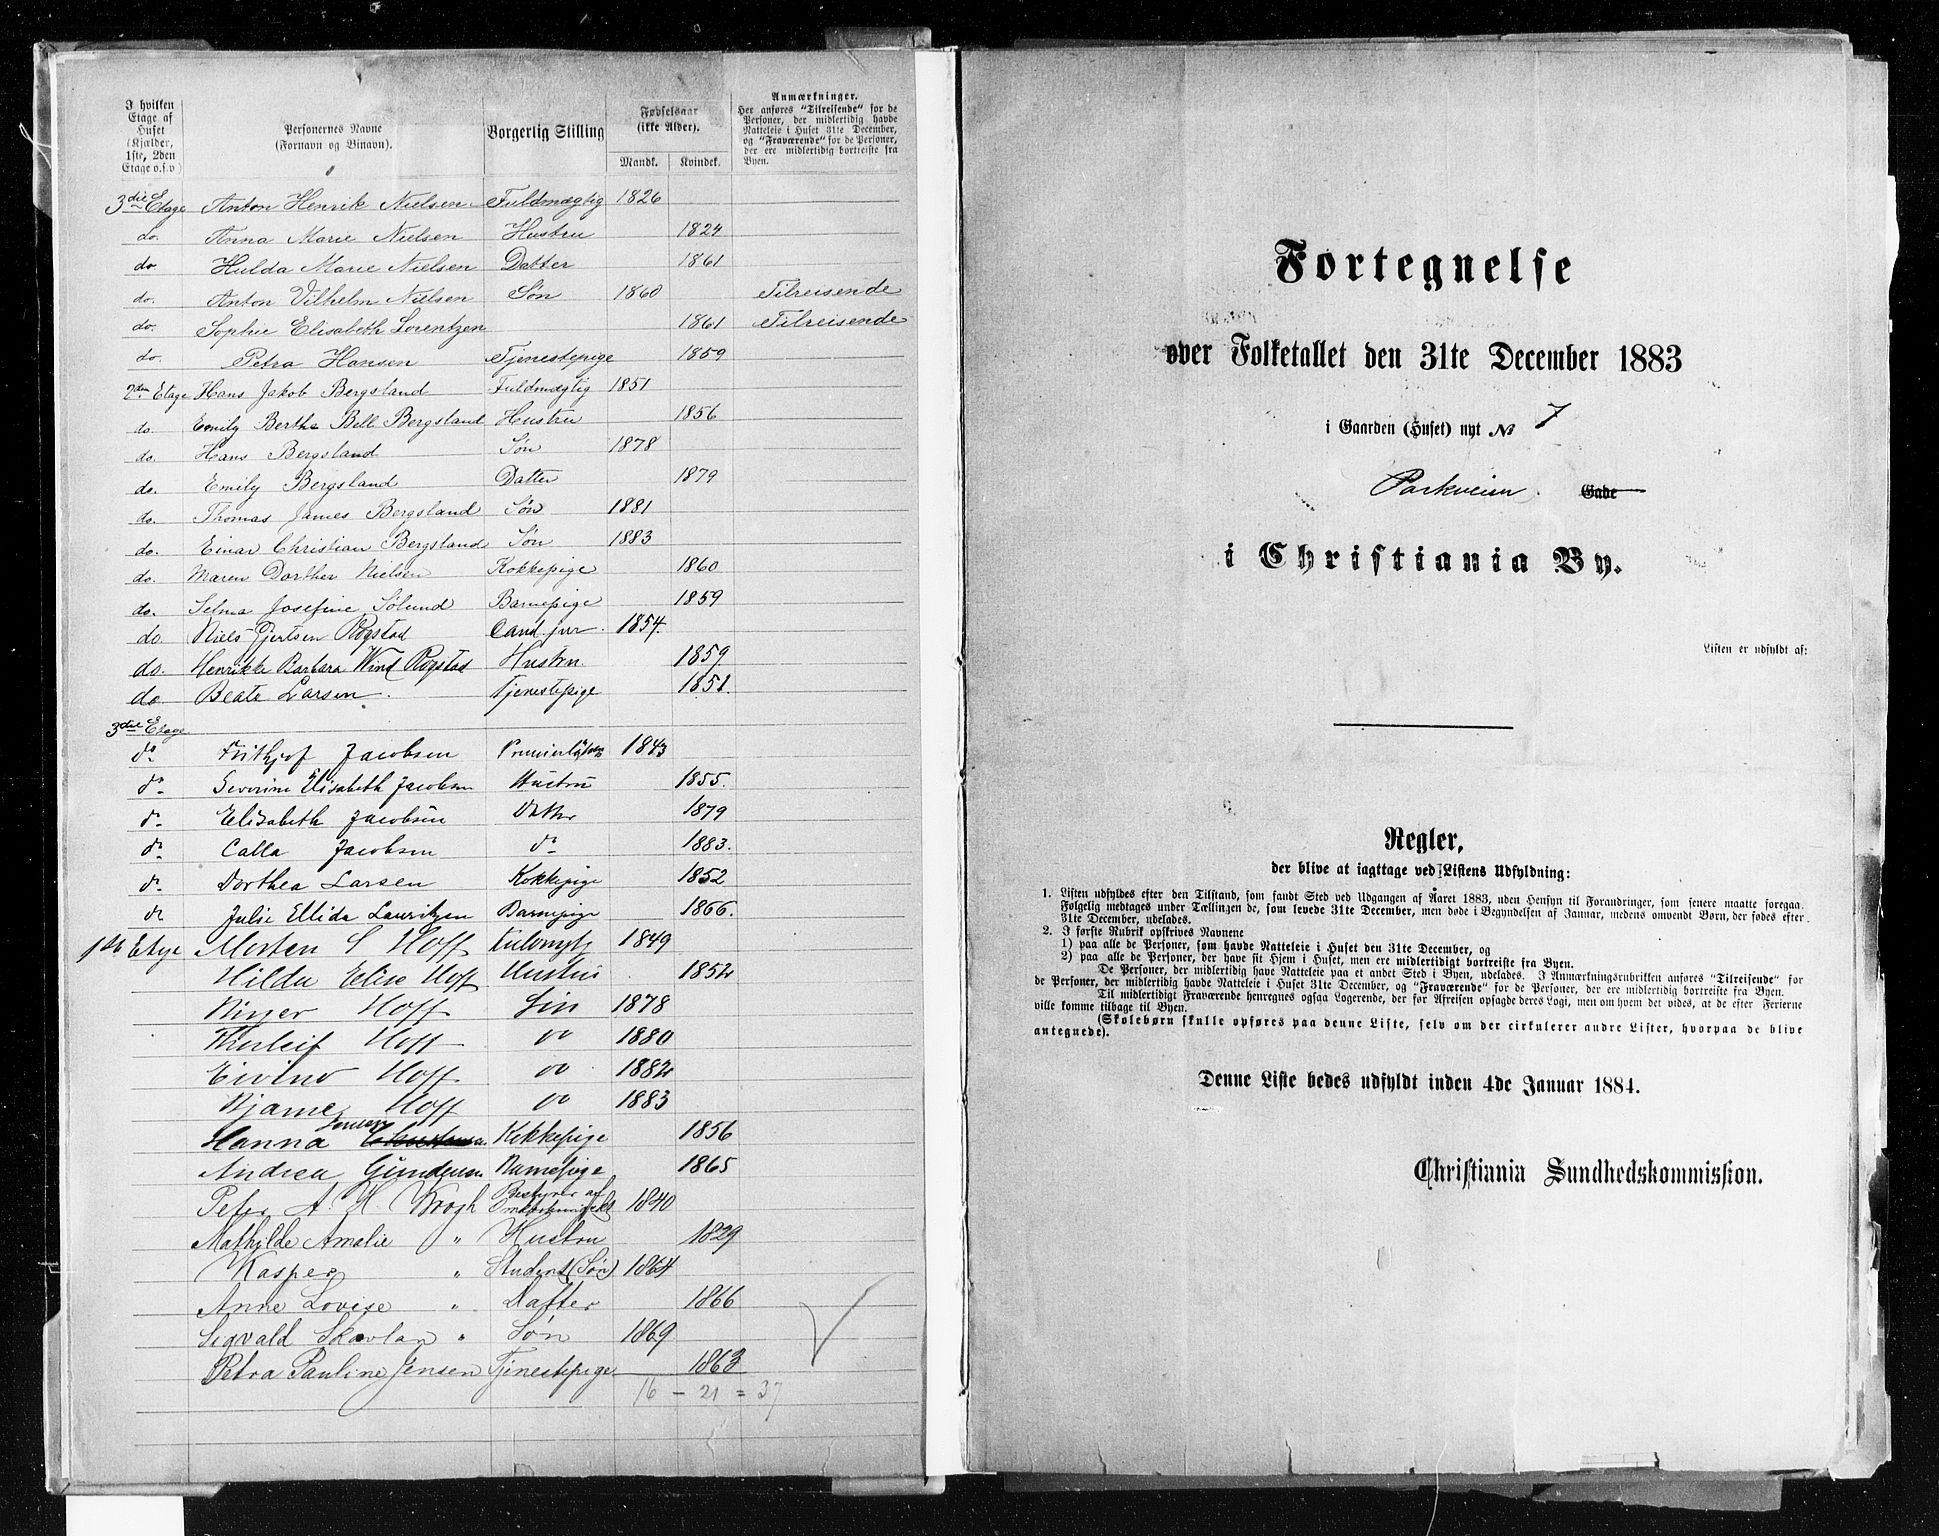 I hvilken
Etage af
Huset
(Kjælder,
1ste, 2den
Etage o.s.v)
Personernes Navne
(Fornavn og Binavn).
Borgerlig Stilling
Fødselsaar
(ikke Alder).
Mandk. Kvindek.
Anmærkninger.
Her anføres "Tilreisende" for de
Personer, der midlertidig havde
Natteleie i Huset 31te December,
og "Fraværende" for de Personer,
der ere midlertidig bortreiste fra
Byen.
3die Etage Anton Henrik Nielsen Fuldmægtig 1826
do. Anna Marie Nielsen Hustru 1824
do Hulda Marie Nielsen Datter 1861
do. Anton Vilhelm Nielsen Søn 1860 Tilreisende
do. Sophie Elisabeth Lorentzen 1861 Tilreisende
do. Petra Hansen Tjenestepige 1859
2den Etage Hans Jakob Bergsland Fuldmægtig 1851
do. Emily Berthe Bell Bergsland Hustru 1856
do. Hans Bergsland Søn 1878
do. Emily Bergsland Datter 1879
do. Thomas James Bergsland Søn 1881
do. Einar Christian Bergsland Søn 1883
do. Maren Dorthea Nielsen Kokkepige 1860
do. Selma Josefine Sølund Barnepige 1859
do. Niels Gjertsen Rogstad Cand. jur. 1854.
do. Henrikke Barbara Wind Rogstad Hustru. 1859
do Beate Larsen. Tjenestepige 1851.
3die Etage
do Frithjof Jacobsen Premierløitn 1843
do Severine Elisabeth Jacobsen Hustru 1855.
do Elisabeth Jacobsen Datter 1879
do Calla Jacobsen do 1883.
do Dorthea Larsen Kokkepige 1852
do Julie Ellida Lauritzen Barnepige 1866.
1ste Etage Morten S Hoff Fuldmgtg 1849
Hilda Elise Hoff Hustru 1852
Birger Hoff Søn 1878
Thorleif Hoff do 1880
Eivind Hoff do 1882
Bjarne Hoff do 1883
Hanna Jensen Kokkepige 1856
Andrea Gundersen Barnepige 1865
Peter A. H. Krogh Bestyrer af 1840
Mathilde Amalie " Hustru 1829
Kasper " Student (Søn) 1864
Anne Lovise " Datter 1866
Sigvald Skavlan " Søn 1869
Petra Pauline Jensen Tjenestepige 1863
16 - 21 = 37
Fortegnelse
over Folketallet den 31te December 1883
i Gaarden (Huset) nyt № 7
Parkveien. Gade
i Christiania By.
Listen er udfyldt af:
Regler,
der blive at iagttage ved Listens Udfyldning:
1. Listen udfyldes efter den Tilstand, som fandt Sted ved Udgangen af Året 1883, uden Hensyn til Forandringer, som senere maatte foregaa.
Følgelig medtages under Tællingen de, som levede 31te December, men døde i Begyndelsen af Januar, medens omvendt Børn, der fødes efter
31te December, udelades.
2. I første Rubrik opskrives Navnene
1) paa alle de Personer, som havde Natteleie i Huset den 31te December, og
2) paa alle de Personer, der have sit Hjem i Huset, men ere midlertidigt bortreiste fra Byen.
De Personer, der midlertidig have Natteleie paa et andet Sted i Byen, udelades. I Anmærkningsrubrikken anføres "Tilreisende" for
de Personer, der midlertidig havde Natteleie i Huset 31te December, og "Fraværende" for de Personer, der ere midlertidig bortreiste fra Byen.
Til midlertidigt Fraværende henregnes ogsaa Logerende, der før Afreisen opsagde deres Logi, men om hvem det vides, at de efter Ferierne
ville komme tilbage til Byen.
(Skolebørn skulle opføres paa denne Liste, selv om der cirkulerer andre Lister, hvorpaa de blive
antegnede).
Denne Liste bedes udfyldt inden 4de Januar 1884.
Christiania Sundhedskommission.